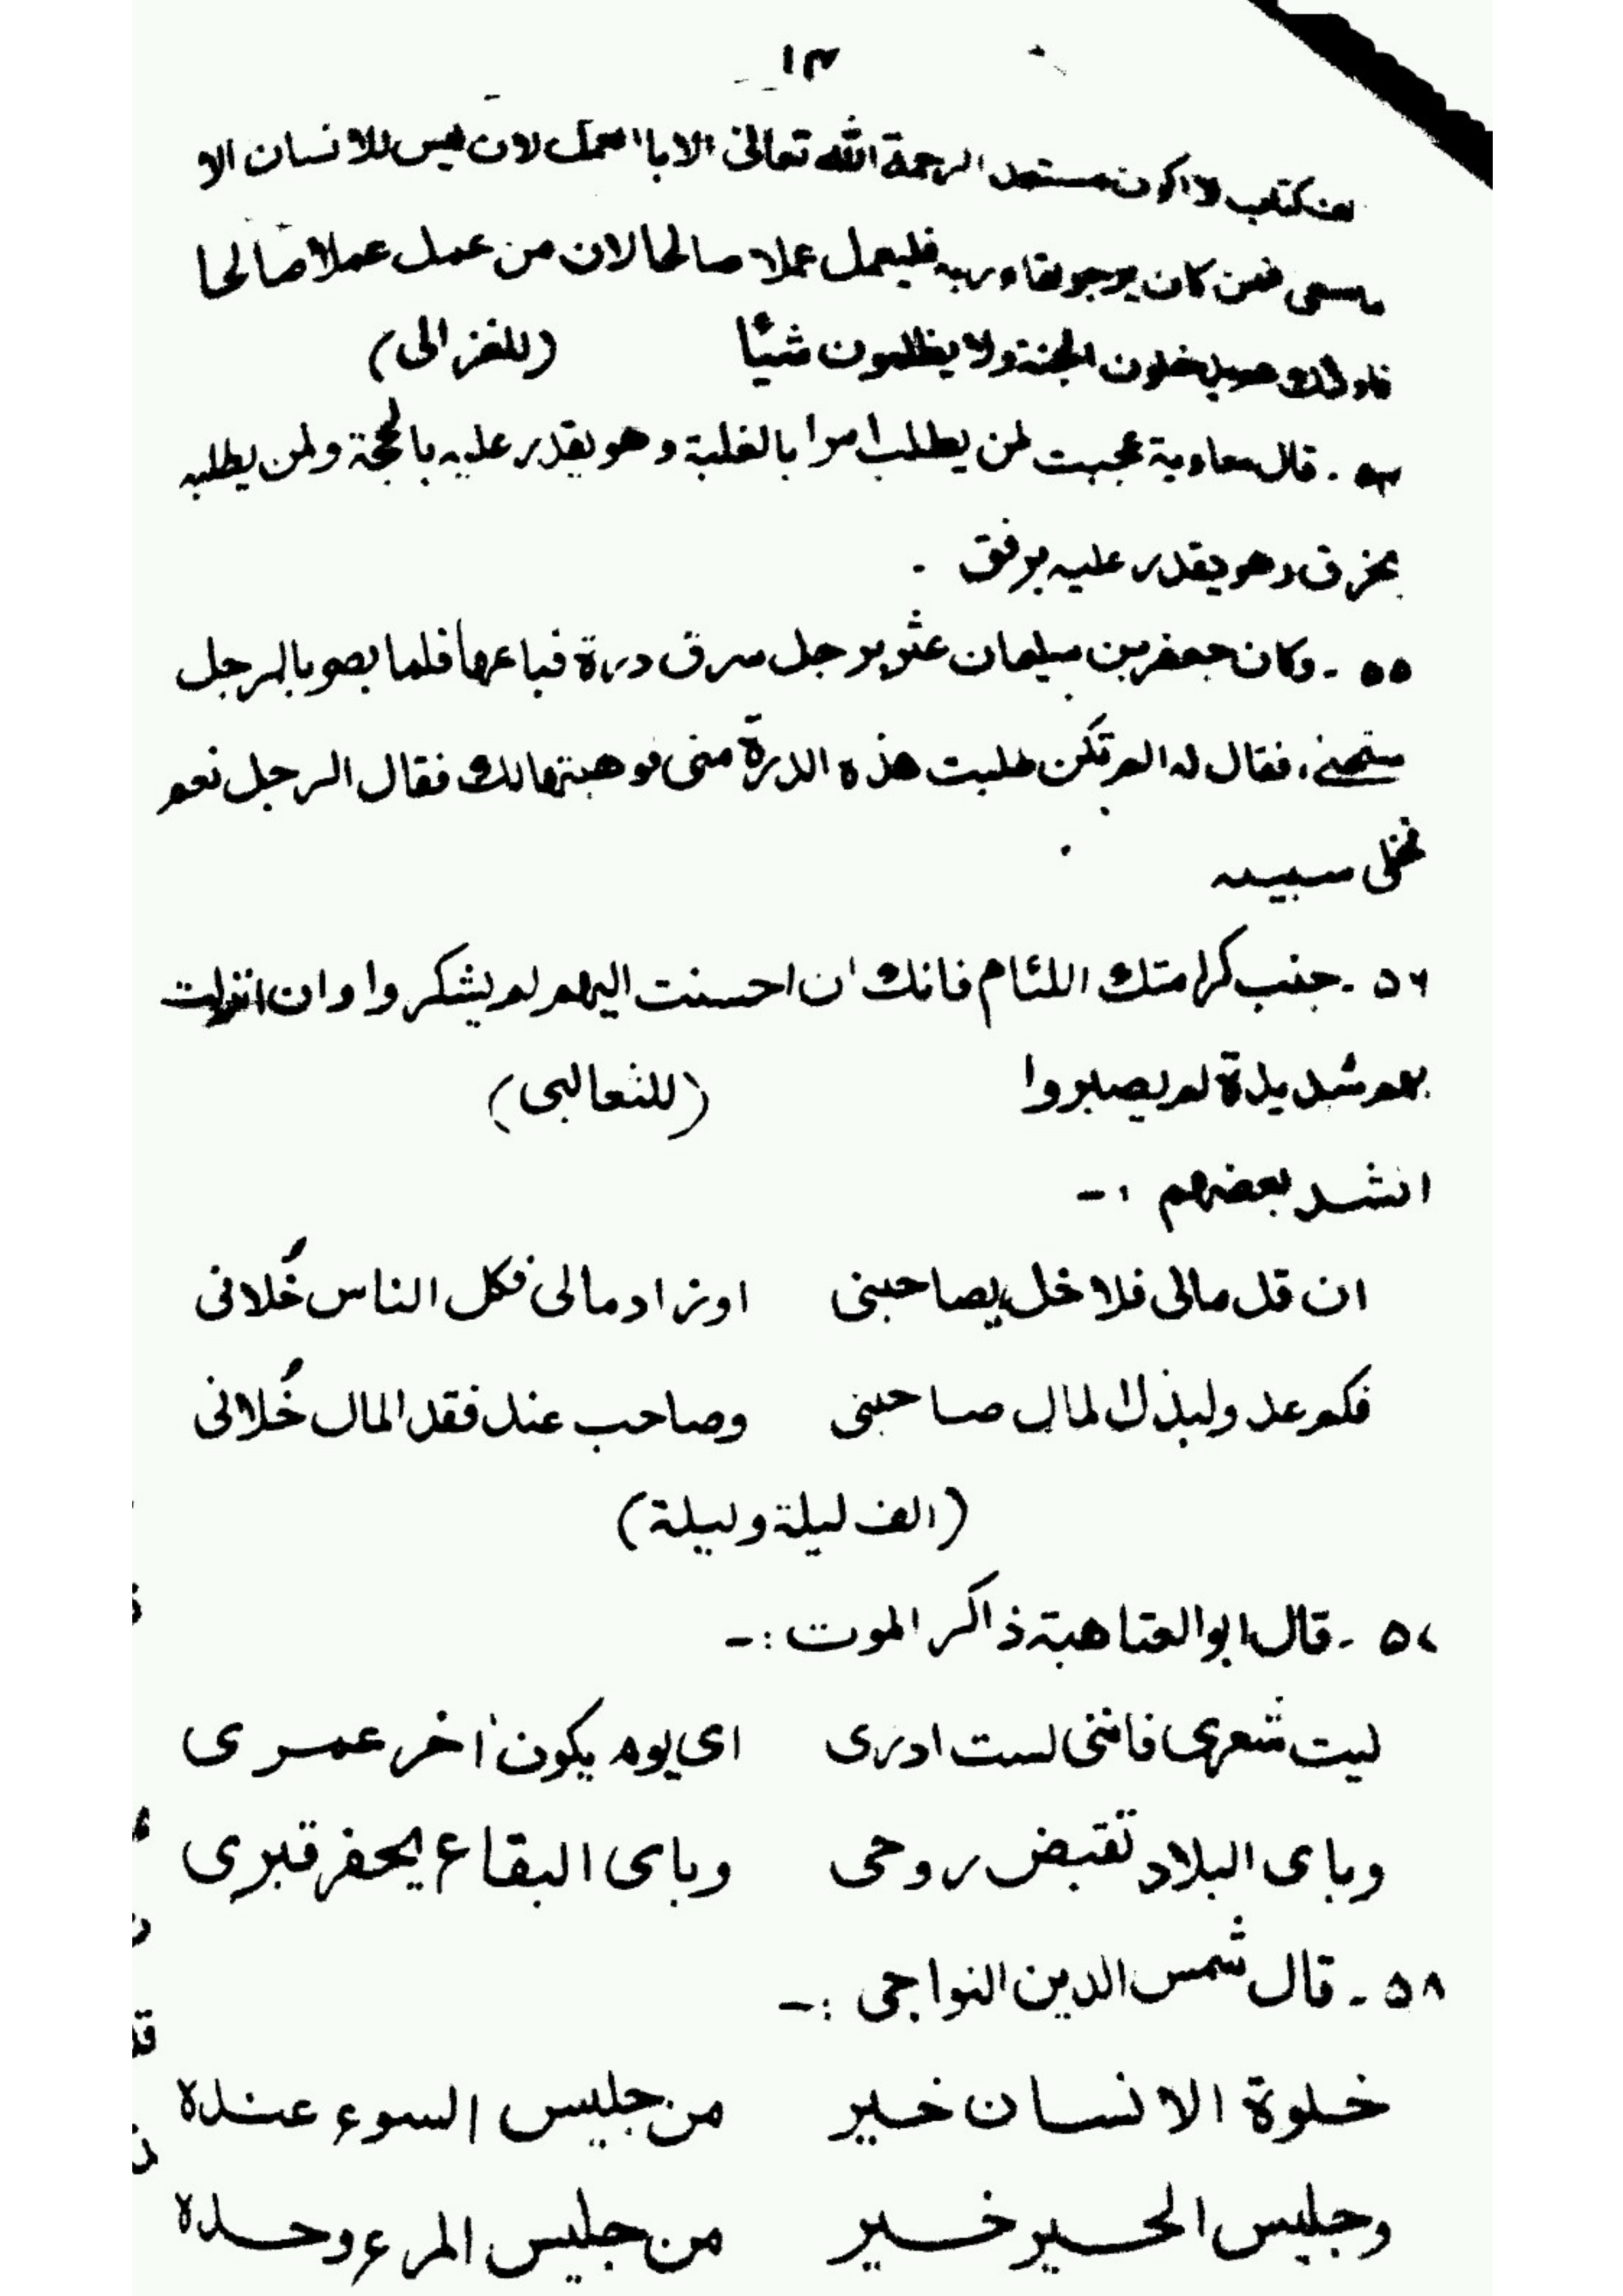 ١٣
من كتاب لا اكون مستعد الرحمة الله تعالى الا با العمل لان ليس للانسان الا
ما سعى فمن كان يرجو لقاء ربه فليعمل عملا صالحا لان من عمل عملا صالحا
فاولئك يدخلون الجنة ولا يظلمون شيئا (للغزالى)
قال معاوية عجبت لمن يطلب امرا بالغلبة وهو يقدر عليه بالحجة ولمن يطلبه
بخرق وهو يقدر عليه برفق .
٥٥ - وكان جعفر بن سليمان عثر برجل سرق درة فباعها فلما بصر بالرجل
ستحيى، فقال له الم تكن طلبت هذه الدرة منى فوهبتها لك فقال الرجل نعم
فخلى سبيله
٥٦ - جنب كرامتك اللئام فانك ان احسنت اليهم لم يشكروا وان انزلت
بهم شديدة لم يصبروا (للثعالبى)
انشد بعضهم :-
ان قل مالى فلا خل يصاحبنى اوزاد مالى فكل الناس خُلانى
فكم عدو لبذل المال صاحبنى وصاحب عند فقد المال خُلانى
(الف ليلة وليلة)
٥٧ - قال ابوالعتاهية ذاكر الموت :-
ليت شعرى فاننى لست ادرى اى يوم يكون اخر عمرى
وباى البلاد تقبض روحى وباى البقاع يحفر قبرى
٥٨ - قال شمس الدين النواجى :-
خلوة الانسان خير من جليس السوء عنده
وجليس الخير خير من جليس المرء وحده